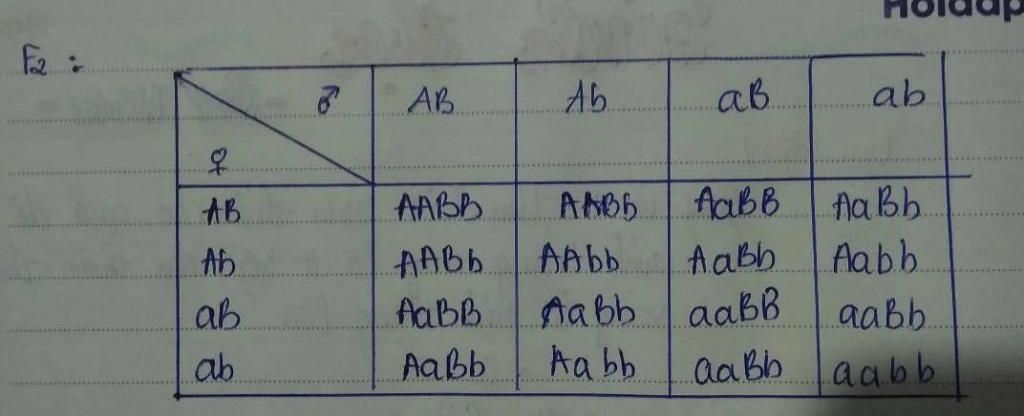 Holdap
F2 :
♂ AB Ab aB ab
♀
AB AABB AABb AaBB AaBb
Ab AABb AAbb AaBb Aabb
aB AaBB AaBb aaBB aaBb
ab AaBb Aabb aaBb aabb